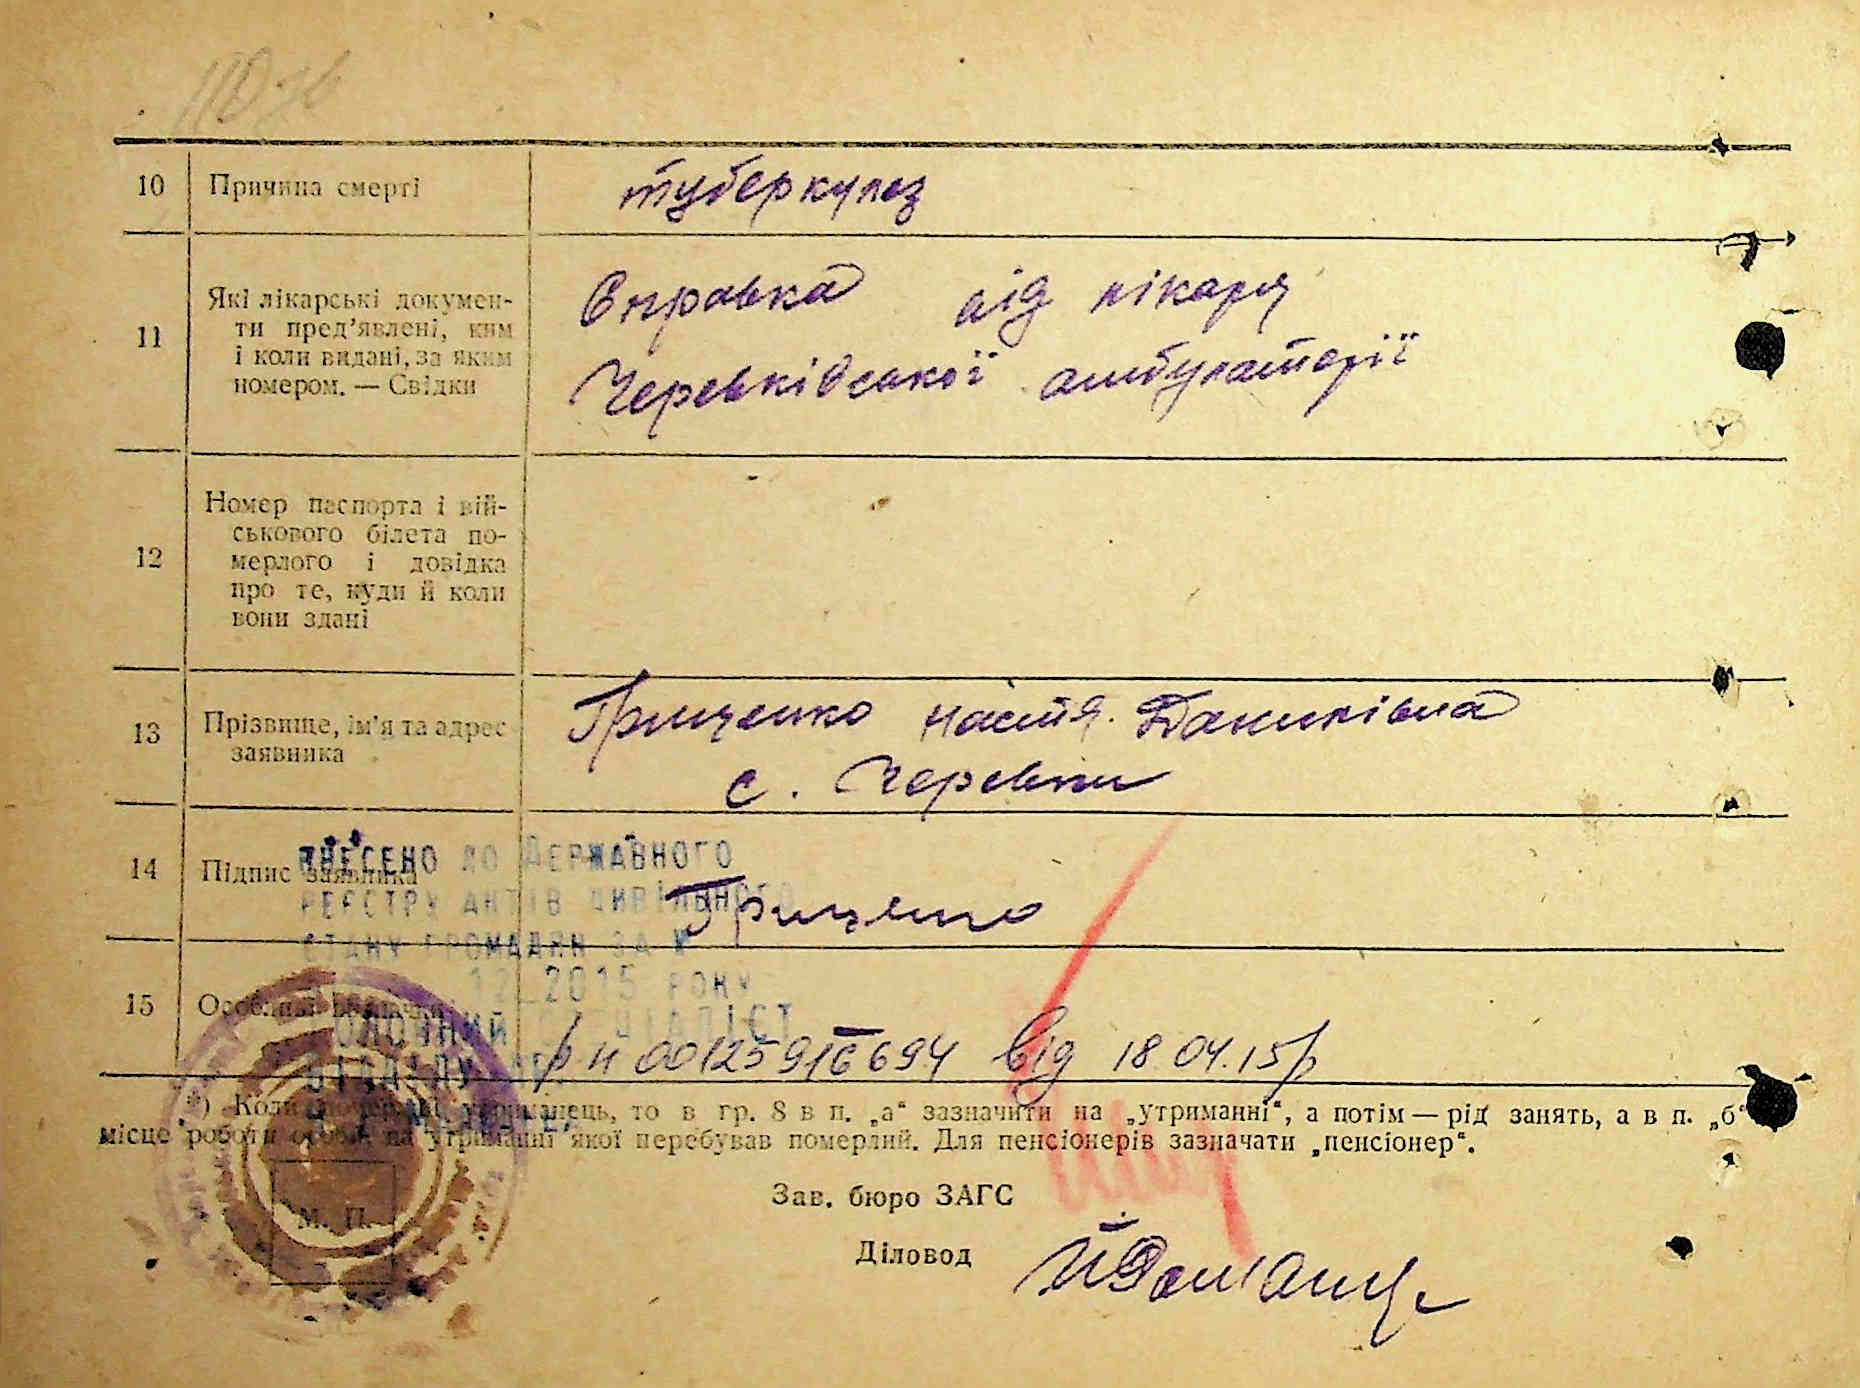 10 Причина смерті туберкулез
11 Які лікарські докумен-
ти пред'явлені, ким
і коли видані, за яким
номером. — Свідки
Справка від лікаря
Черевківської амбулаторії
12 Номер паспорта і вій-
ськового білета по-
мерлого і довідка
про те, куди й коли
вони здані
13 Прізвище, ім'я та адрес
заявника
Грищенко Настя Данилівна
с. Черевки
14 Підпис заявника
Грищенко
ВНЕСЕНО ДО ДЕРЖАВНОГО
РЕЄСТРУ АКТІВ ЦИВІЛЬНОГО
СТАНУ ГРОМАДЯН ЗА №
12 2015 РОКУ
ГОЛОВНИЙ СПЕЦІАЛІСТ
ВІДДІЛУ
15 Особливі відмітки
р н 00125916694 від 18.04.15р
*) Коли померлий утриманець, то в гр. 8 в п. „а“ зазначити на „утриманні“, а потім — рід занять, а в п. „б“
місце роботи особи, на утриманні якої перебував померлий. Для пенсіонерів зазначати „пенсіонер“.
М. П.
Зав. бюро ЗАГС
Діловод